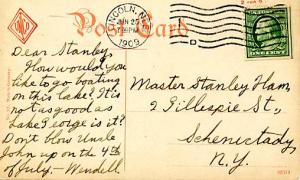 Post Card
LINCOLN, NEB.
JUN 25
1909
Dear Stanley,
How would you
like to go boating
on this lake? It is
not as good as
Lake George is it?
Don't blow Uncle
John up on the 4th
of July.— Wendell.
Master Stanley Ham,
2 Gillespie St.,
Schenectady,
N.Y.